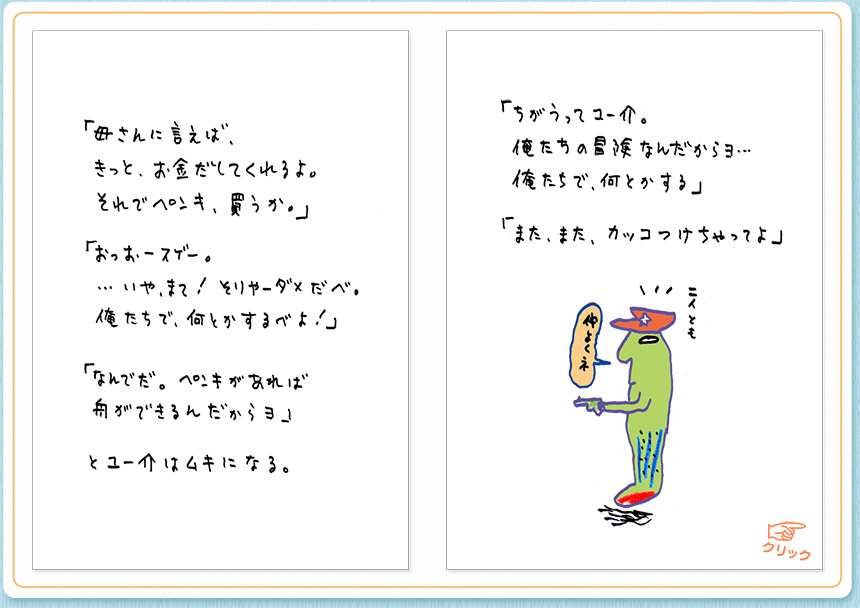 「母さんに言えば、
きっと、お金だしてくれるよ。
それでペンキ、買うか。」
「おっおースゲー。
…いや、まて！そりゃーダメだべ。
俺たちで、何とかするべよ！」
「なんでだ。ペンキがあれば
舟ができるんだからヨ」
とユー介はムキになる。
「ちがうってユー介。
俺たちの冒険なんだからヨ…
俺たちで、何とかする」
「また、また、カッコつけちゃってよ」
ニイとも
仲よくネ
クリック